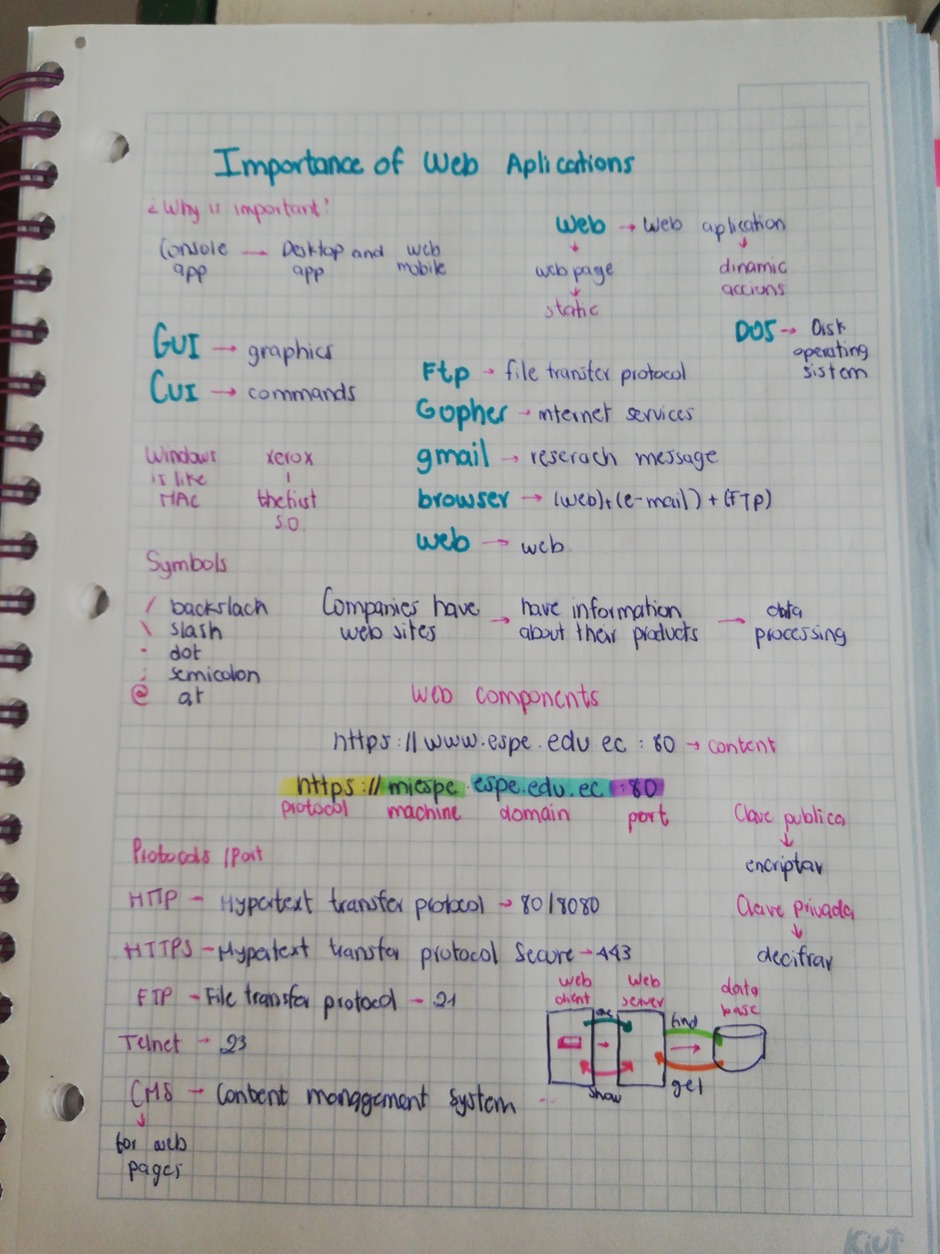 Importance of Web Aplications
¿Why is important?
Console → Desktop and web
app app mobile
Web → Web aplication
web page
static
dinamic
accions
DOS → Disk
operating
sistem
GUI → graphics
CUI → commands
Ftp → file transfer protocol
Gopher → internet services
gmail → reserach message
browser → (web)+(e-mail)+(FTP)
web → web.
Windows
is like
MAC
xerox
the fist
S.O.
Symbols
/ backslach
\ slash
. dot
; semicolon
@ at
Companies have → have information → data
web sites about their products processing
Web components
https://www.espe.edu ec : 80 → content
https:// miespe. espe.edu.ec :80
protocol machine domain port
Clave publica
encriptar
Clave privada
decifrar
Protocols /Port
HTTP - Hypertext transfer protocol → 80/8080
HTTPS - Hypertext transfer protocol Secure - 443
FTP - File transfer protocol - 21
Telnet - 23
CMS - Content management system
for web
pages
web
client
web
server
data
base
find
show
get